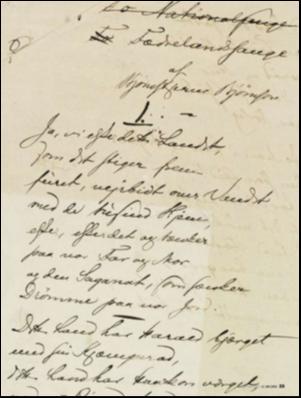 to Nationalsange
Fædrelandssange
af
Bjørnstjerne Bjørnson
1.
Ja, vi elske dette Landet,
som det stiger frem
furet, vejrbidt over Vandet
med de tusind Hjem,
elske, elske det og tænker
paa vor Far og Mor
og den Saganat, som sænker
Drömme paa vor Jord.
Dette Land har Harald bjerget
med sin Kjæmperad,
dette Land har Haakon værget,